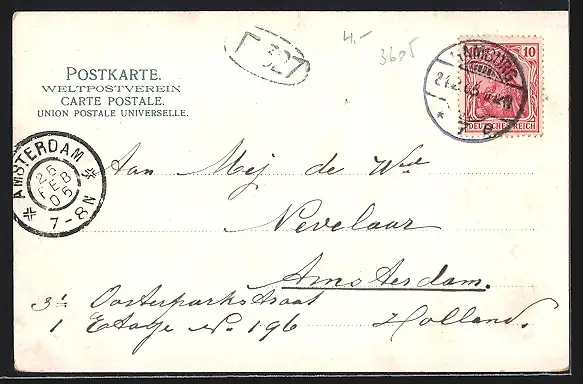 4.-
3605
327
POSTKARTE.
WELTPOSTVEREIN
CARTE POSTALE.
UNION POSTALE UNIVERSELLE.
10
DEUTSCHES REICH
HAMBURG
AMSTERDAM
25
FEB
05
7-8N
Aan Mej de Wed
Nevelaar
Amsterdam.
Oosterparkstraat
Holland.
1 Etage No. 196